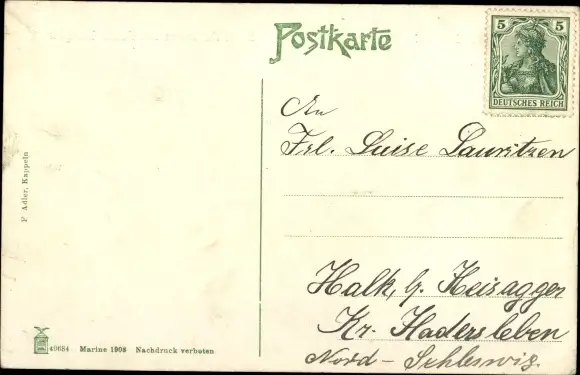 Postkarte
5 5
DEUTSCHES REICH
An
Frl. Luise Lauritzen
Halk, b. Heisagger
Kr. Hadersleben
Nord - Schleswig.
F Adler, Kappeln
49684 Marine 1908 Nachdruck verboten